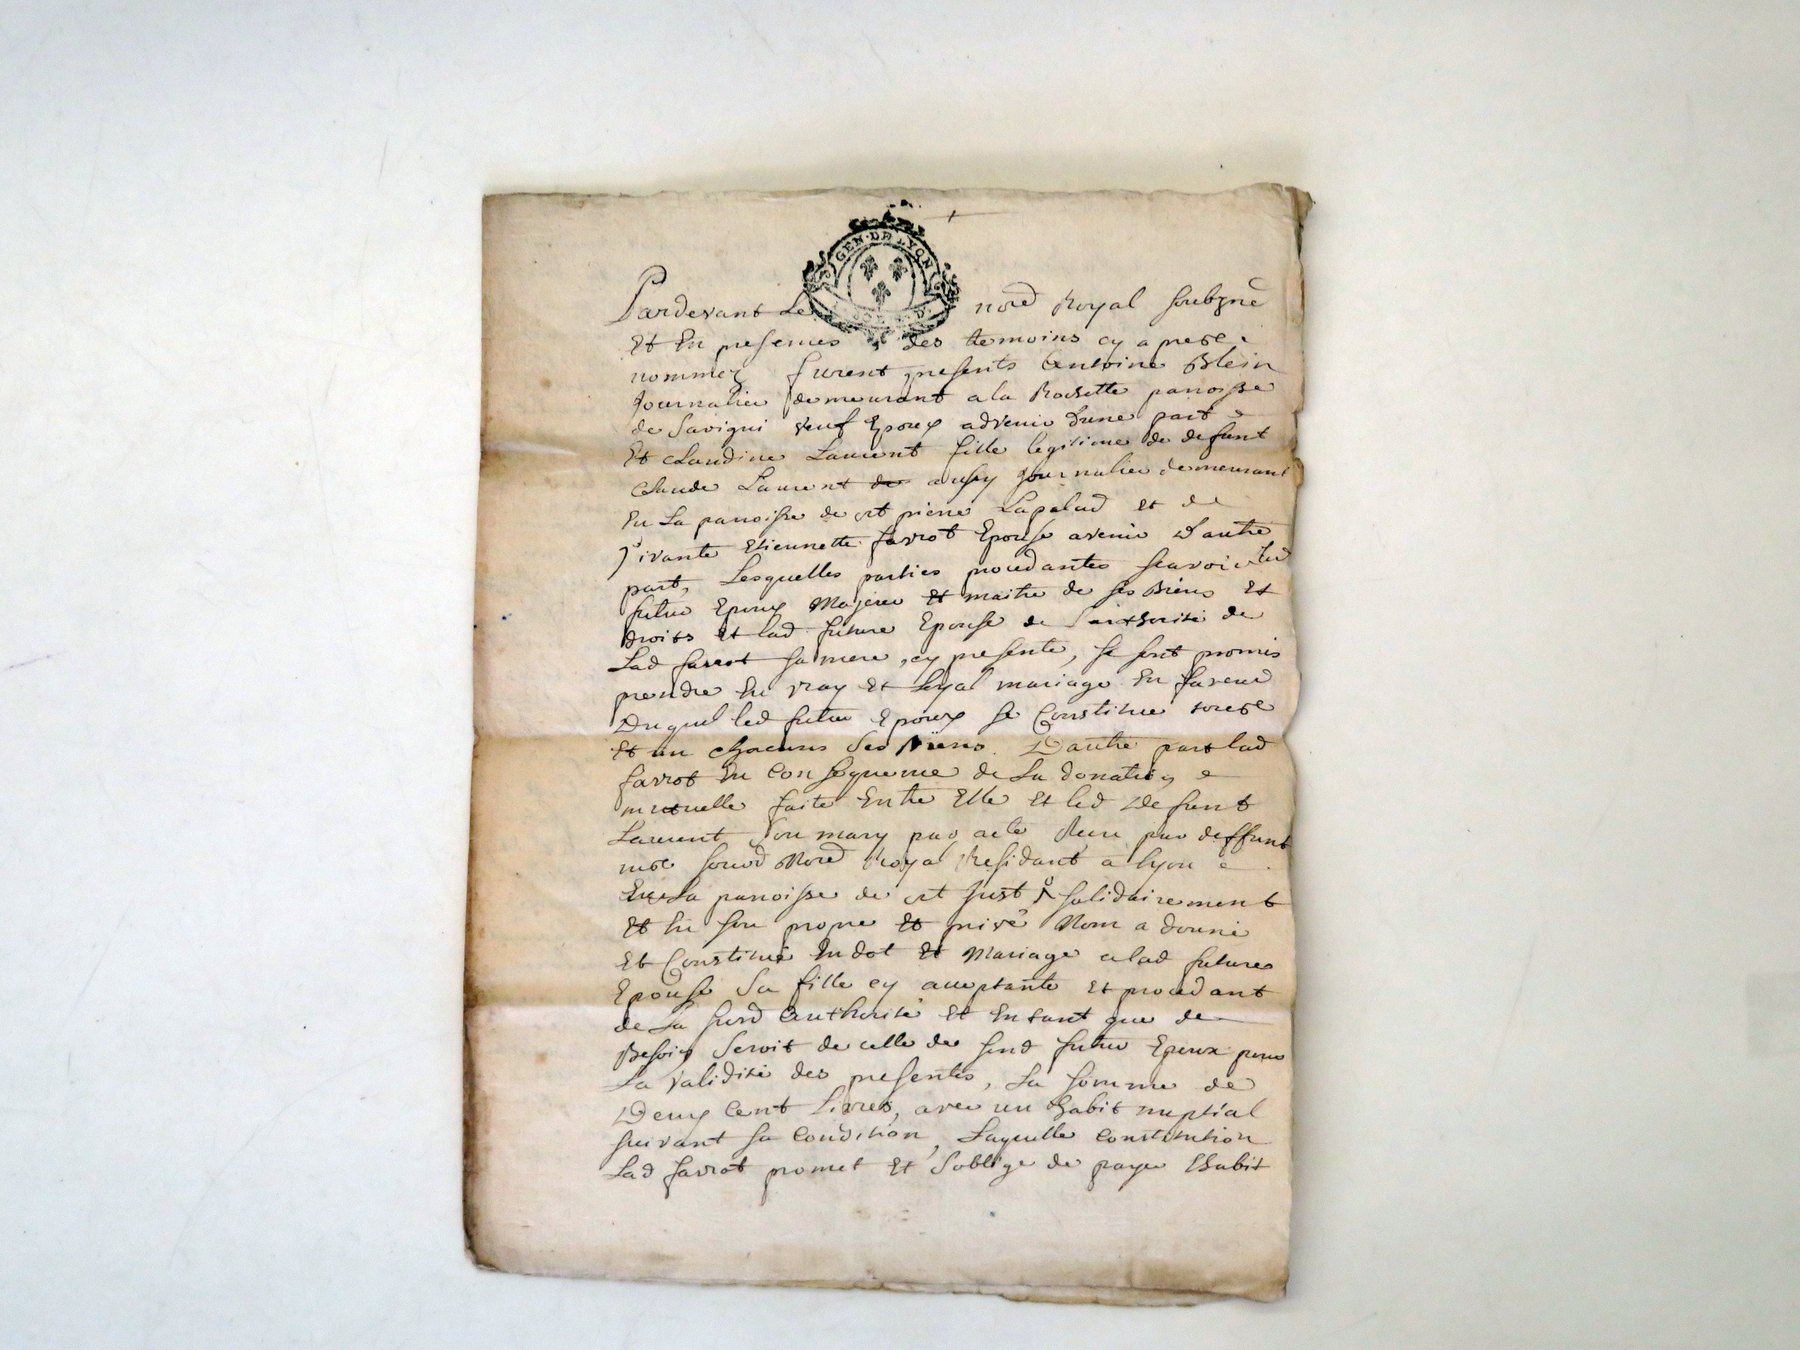 GEN·DE LYON
Pardevant Le nore Royal soubzne
Et En presences des temoins cy apres
nommez furent presents Antoine Blein
journalier demeurant a la Rosette paroisse
de Savigni veuf Epoux advenir d'une part
Et Claudine Laurent fille legitime de defunt
Claude Laurent de aussy journalier demeurant
En La paroisse de st pierre Lapalud et de
vivante Etiennette farrot Epouse avenir d'autre
part, Lesquelles parties procedantes scavoir led
futur Epoux Majeur Et maitre de ses Biens Et
droits Et lad future Epouse de Lauthorité de
Lad farrot sa mere, cy presente, se sont promis
prendre En vray Et Loyal mariage En faveur
Duquel led futur Epoux se Constitue
Et un chacuns ses Biens. D'autre part lad
farrot En consequence de La donation
mutuelle faite Entre Elle Et led Defunt
Laurent son mary par acte Receu par deffunt
me nore Royal Residant a lyon
En La paroisse de st Just solidairement
Et En son propre Et privé Nom a donné
Et Constitué En dot Et Mariage a lad future
Epouse Sa fille cy acceptante Et procedant
de La susd Authorité Et En tant que de
Besoin Seroit de celle de sond futur Epoux pour
La validité des presentes, La somme de
Deux Cent Livres, avec un habit nuptial
suivant sa Condition, Laquelle constitution
Lad farrot promet Et S'oblige de payer Lhabit